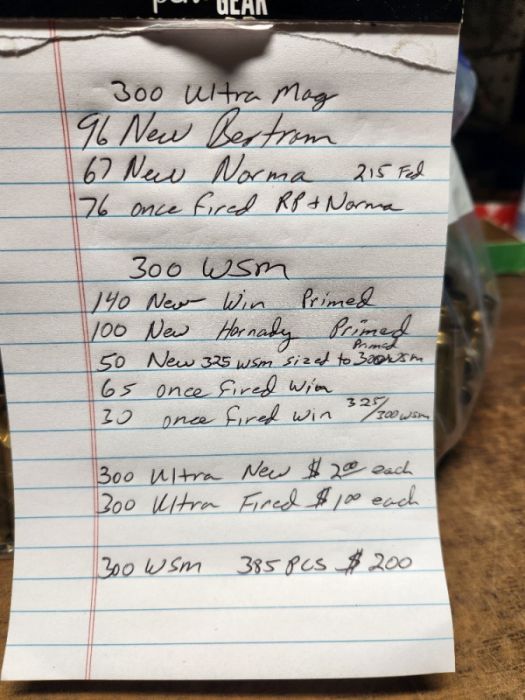 GEAR
300 Ultra Mag
96 New Bertram
67 New Norma 215 Fed
76 once fired RP + Norma
300 WSM
140 New Win Primed
100 New Hornady Primed
Primed
50 New 325 WSM sized to 300 WSM
65 once fired Win
30 once fired Win 325/300 WSM
300 Ultra New $2.00 each
300 Ultra Fired $1.00 each
300 WSM 385 PCS $200